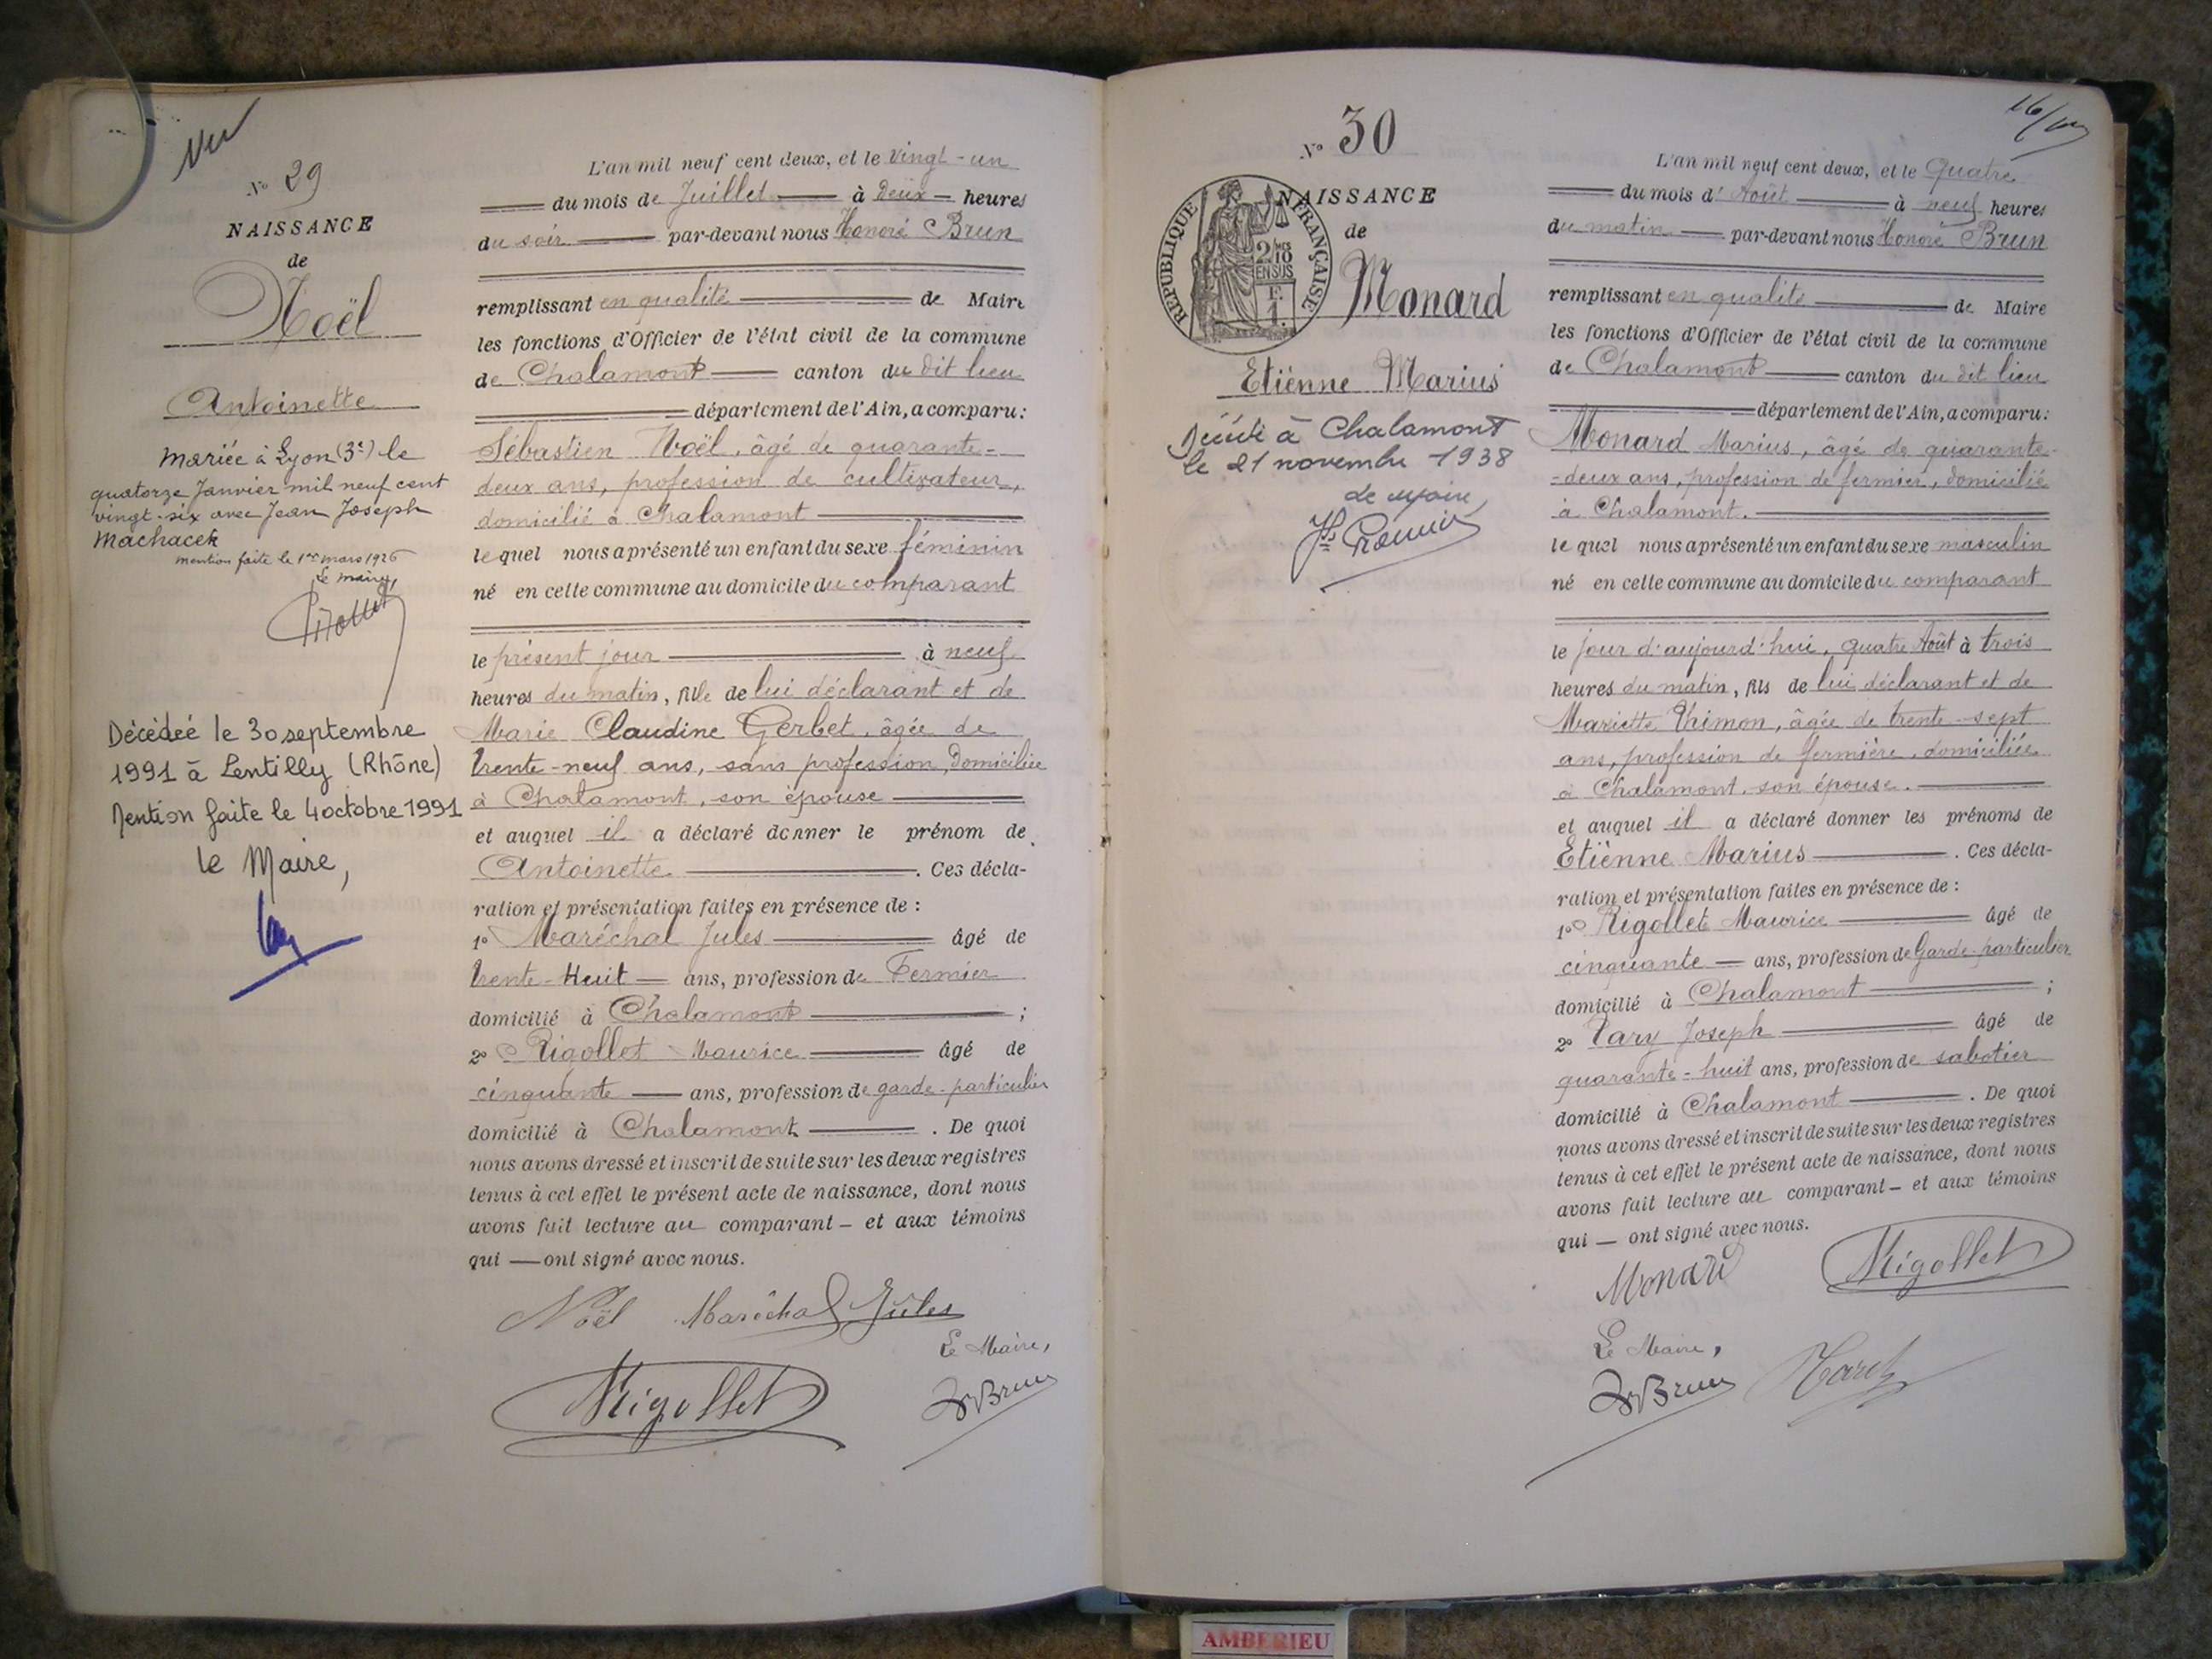 Vu
N° 29
NAISSANCE
de
Noël
Antoinette
mariée à Lyon (3e) le
quatorze Janvier mil neuf cent
vingt-six avec Jean Joseph
Machacek
mention faite le 1er mars 1926
Le maire,
Décédeé le 30 septembre
1991 à Lentilly (Rhône)
Mention faite le 4 octobre 1991
le Maire,
L'an mil neuf cent deux, et le vingt-un
du mois de Juillet à Deux heures
du soir par-devant nous Honoré Brun
remplissant en qualité de Maire
les fonctions d'Officier de l'état civil de la commune
de Chalamont canton du dit lieu
département de l'Ain, a comparu:
Sébastien Noël, âgé de quarante-
deux ans, profession de cultivateur,
domicilié à Chalamont
lequel nous a présenté un enfant du sexe féminin
né en cette commune au domicile du comparant
le présent jour à neuf
heures du matin, fille de lui déclarant et de
Marie Claudine Gerbet, âgée de
trente-neuf ans, sans profession, domiciliée
à Chalamont, son épouse
et auquel il a déclaré donner le prénom de
Antoinette. Ces décla-
ration et présentation faites en présence de :
1° Maréchal Jules âgé de
trente-Huit ans, profession de Fermier
domicilié à Chalamont ;
2° Rigollet Maurice âgé de
cinquante ans, profession de garde-particulier
domicilié à Chalamont . De quoi
nous avons dressé et inscrit de suite sur les deux registres
tenus à cet effet le présent acte de naissance, dont nous
avons fait lecture au comparant et aux témoins
qui ont signé avec nous.
Noël Maréchal Jules
Le Maire,
Rigollet HBrun
N° 30
NAISSANCE
de
RÉPUBLIQUE FRANÇAISE
Monard
Etiènne Marius
Décédé à Chalamont
le 21 novembre 1938
Le maire,
16/
L'an mil neuf cent deux, et le quatre
du mois d'Août à neuf heures
du matin par-devant nous Honoré Brun
remplissant en qualité de Maire
les fonctions d'Officier de l'état civil de la commune
de Chalamont canton du dit lieu
département de l'Ain, a comparu:
Monard Marius, âgé de quarante-
-deux ans, profession de fermier, domicilié
à Chalamont.
lequel nous a présenté un enfant du sexe masculin
né en cette commune au domicile du comparant
le jour d'aujourd'hui, quatre Août à trois
heures du matin, fils de lui déclarant et de
Mariette Thimon, âgée de trente-sept
ans, profession de fermière, domiciliée
à Chalamont, son épouse.
et auquel il a déclaré donner les prénoms de
Etiènne Marius . Ces décla-
ration et présentation faites en présence de :
1° Rigollet Maurice âgé de
cinquante ans, profession de Garde-particulier
domicilié à Chalamont ;
2° Joseph âgé de
quarante-huit ans, profession de sabotier
domicilié à Chalamont . De quoi
nous avons dressé et inscrit de suite sur les deux registres
tenus à cet effet le présent acte de naissance, dont nous
avons fait lecture au comparant et aux témoins
qui ont signé avec nous.
Monard Rigollet
Le Maire,
HBrun
AMBERIEU